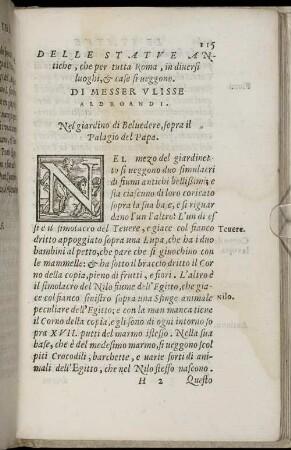 115
DELLE STATVE AN-
tiche, che per tutta Roma, in diuersi
luoghi, & case si ueggono.
DI MESSER VLISSE
ALDROANDI.
Nel giardino di Beluedere, sopra il
Palagio del Papa.
NEL mezo del giardinet
to si ueggono duo simulacri
di fiumi antichi bellissimi; e
sta ciascuno di loro coricato
sopra la sua base, e si riguar
dano l'un l'altro: L'un di es
si è il simolacro del Teuere, e giace col fianco
dritto appoggiato sopra una Lupa, che ha i duo
bambini al petto, che pare si giuochino con
le mammelle: & ha sotto il braccio dritto il Cor
no della copia, pieno di frutti, e fiori. L'altro è
il simolacro del Nilo fiume dell'Egitto, che gia-
ce col fianco sinistro sopra una Sfinge animale
peculiare dell'Egitto; e con la man manca tiene
il Corno della copia, e gli sono di ogni intorno so
pra XVII. putti del marmo istesso. Nella sua
base, che è del medesimo marmo, si ueggono scol
piti Crocodili; barchette, e uarie sorti di ani-
mali dell'Egitto, che nel Nilo stesso nascono.
Teuere.
Nilo.
H 2 Questo